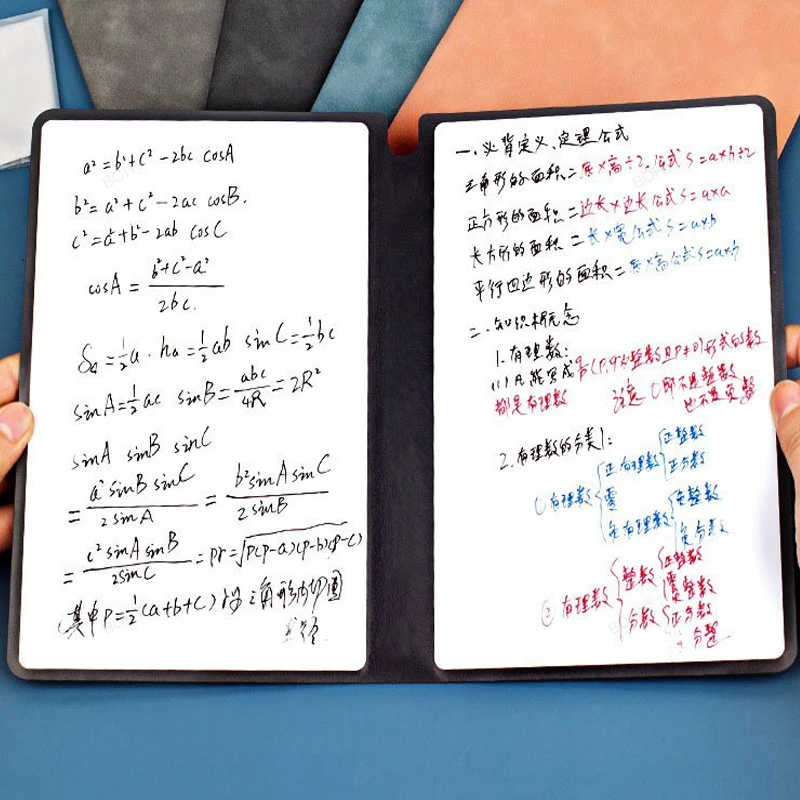 a² = b² + c² - 2bc cosA
b² = a² + c² - 2ac cosB.
c² = a² + b² - 2ab cosC
cosA = (b² + c² - a²) / 2bc.
S = 1/2 a · ha = 1/2 ab sinC = 1/2 bc
sinA = 1/2 ac sinB = abc / 4R = 2R²
sinA sinB sinC
= a² sinB sinC / 2 sinA = b² sinA sinC / 2 sinB
= c² sinA sinB / 2 sinC = pr = √p(p-a)(p-b)(p-c)
其中 P = 1/2 (a+b+c) 三角形内切圆
一、必背定义、定理公式
三角形的面积=底×高÷2.公式 S=a×h÷2
正方形的面积=边长×边长公式 S=a×a
长方形的面积=长×宽公式 S=a×b
平行四边形的面积=底×高公式 S=a×h
二、知识概念
1.有理数:
(1)凡能写成 (p,q为整数且p≠0)形式的数
都是有理数 注意 0即不是整数
也不是负数
2.有理数的分类1:
①有理数{正有理数{正整数
正分数
零
负有理数{负整数
负分数
②有理数{整数{正整数
零
分数{正分数